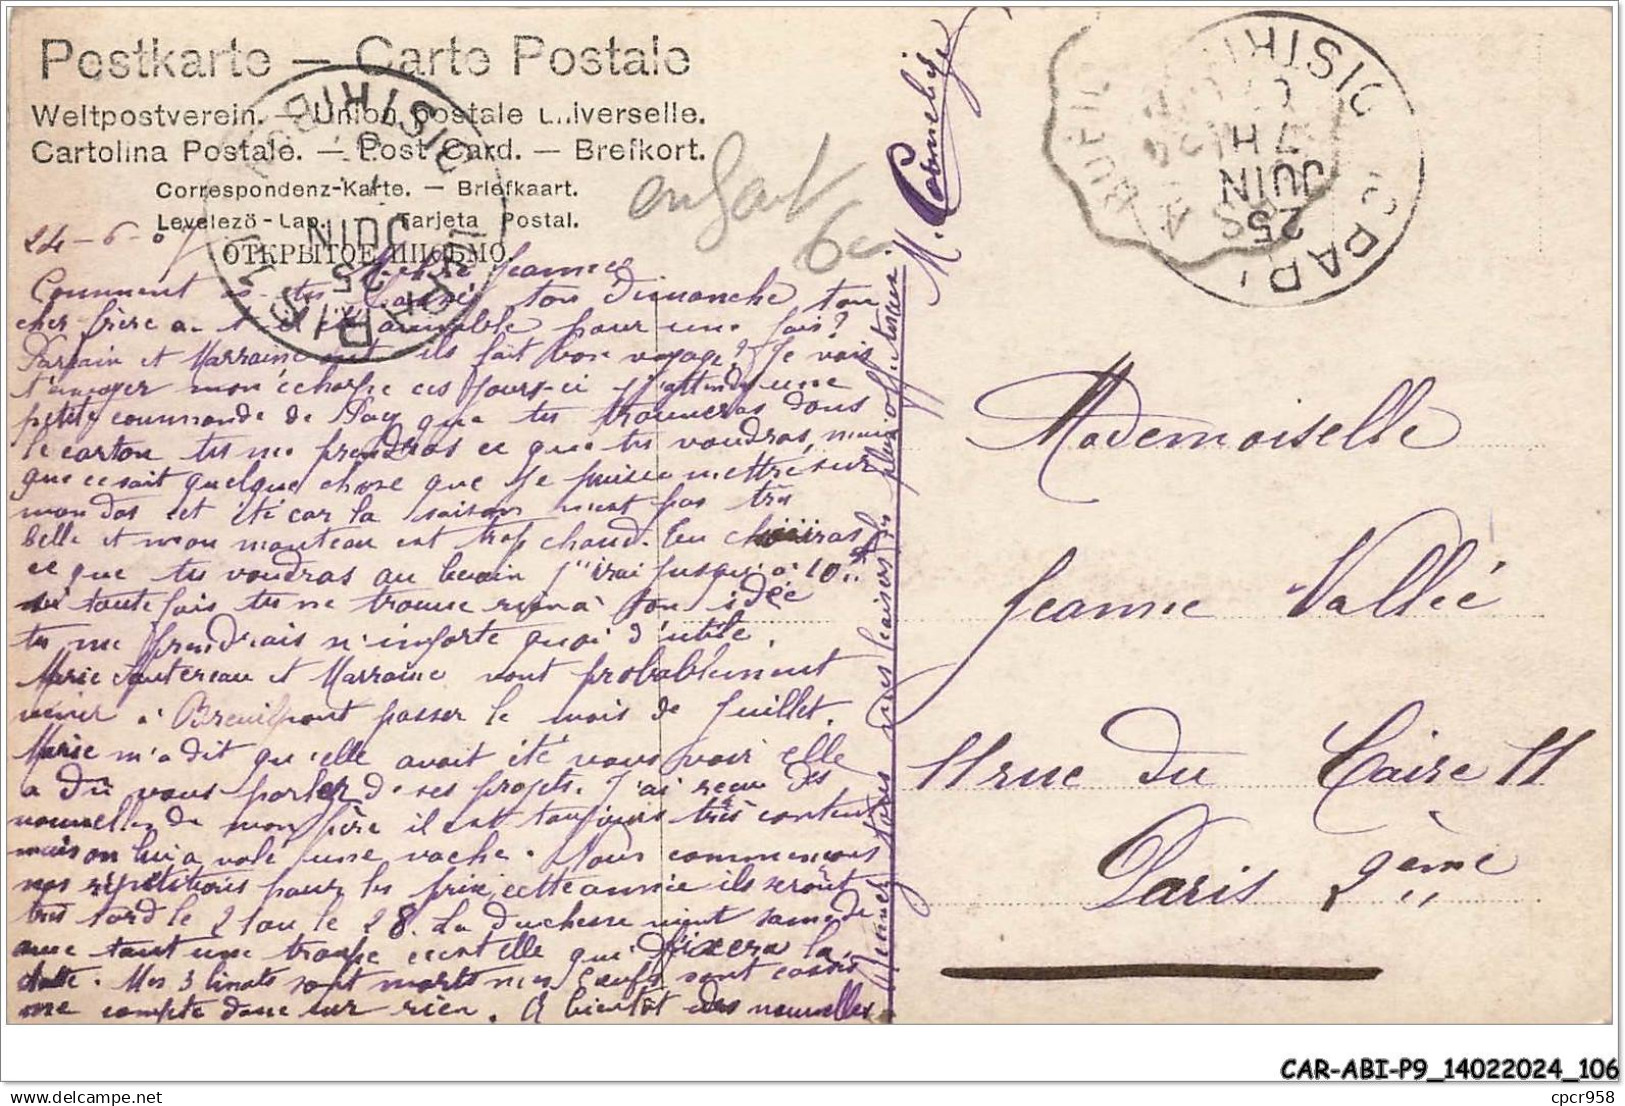 Postkarte — Carte Postale
Weltpostverein. — Union postale universelle.
Cartolina Postale. — Post Card. — Brefkort.
Correspondenz-Karte. — Briefkaart.
Levelezö-Lap. — Tarjeta Postal.
ОТКРЫТОЕ ПИСЬМО.
enfant
6c
PARIS DISTRIB
25
JUIN
7H
25
JUIN
24-6-07
Jeanne
Comment as-tu passé ton Dimanche ton
cher frère a-t-il été aimable pour une fois?
Parrain et Marraine ont ils fait bon voyage? Je vais
t'envoyer mon écharpe ces jours-ci j'attends une
petite commande de Pacy que tu trouveras dans
le carton tu me prendras ce que tu voudras, mais
que ce soit quelque chose que je puisse mettre sur
mon dos cet été car la saison n'est pas très
belle et mon manteau est trop chaud. Tu choisiras
ce que tu voudras au besoin j'irai jusqu'à 10
si toutefois tu ne trouve rien à ton idée
tu me prendrais n'importe quoi d'utile.
Marie Sautereau et Marraine vont probablement
venir à Breuilpont passer le mois de Juillet.
Marie m'a dit qu'elle avait été vous voir elle
a dû vous parler de ses projets. J'ai reçu des
nouvelles de mon père il est toujours très content
mais on lui a volé une vache. Nous commençons
nos répétitions pour les prix cette année ils seront
très tard le 21 ou le 28. La Duchesse vient samedi
avec toute une troupe c'est elle qui fixera la
date. Mes 3 linots sont morts mes oeufs sont cassés
ne compte donc sur rien. A bientôt des nouvelles
Recevez tous mes baisers les plus affectueux.
M. Cornelise
Mademoiselle
Jeanne Vallée
11 rue du Caire 11
Paris 2ème
CAR-ABI-P9_14022024_106
cpcr958